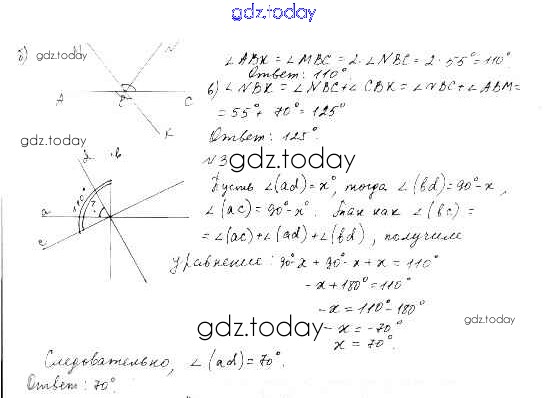 gdz.today
б) gdz.today
N
A
C
K
∠ABK = ∠MBC = 2·∠NBC = 2·55° = 110°
Ответ: 110°.
в) ∠NBK = ∠NBC + ∠CBK = ∠NBC + ∠ABM =
= 55° + 70° = 125°
Ответ: 125°.
gdz.today
N3
gdz.today
d
b
110°
?
a
c
Пусть ∠(ad) = x°, тогда ∠(bd) = 90° - x,
∠(ac) = 90° - x°. Так как ∠(bc) =
= ∠(ac) + ∠(ad) + ∠(bd), получим
уравнение: 90° x + 90° - x + x = 110°
- x + 180° = 110°
- x = 110° - 180°
gdz.today
gdz.today
- x = - 70°
x = 70°.
Следовательно, ∠(ad) = 70°.
Ответ: 70°.